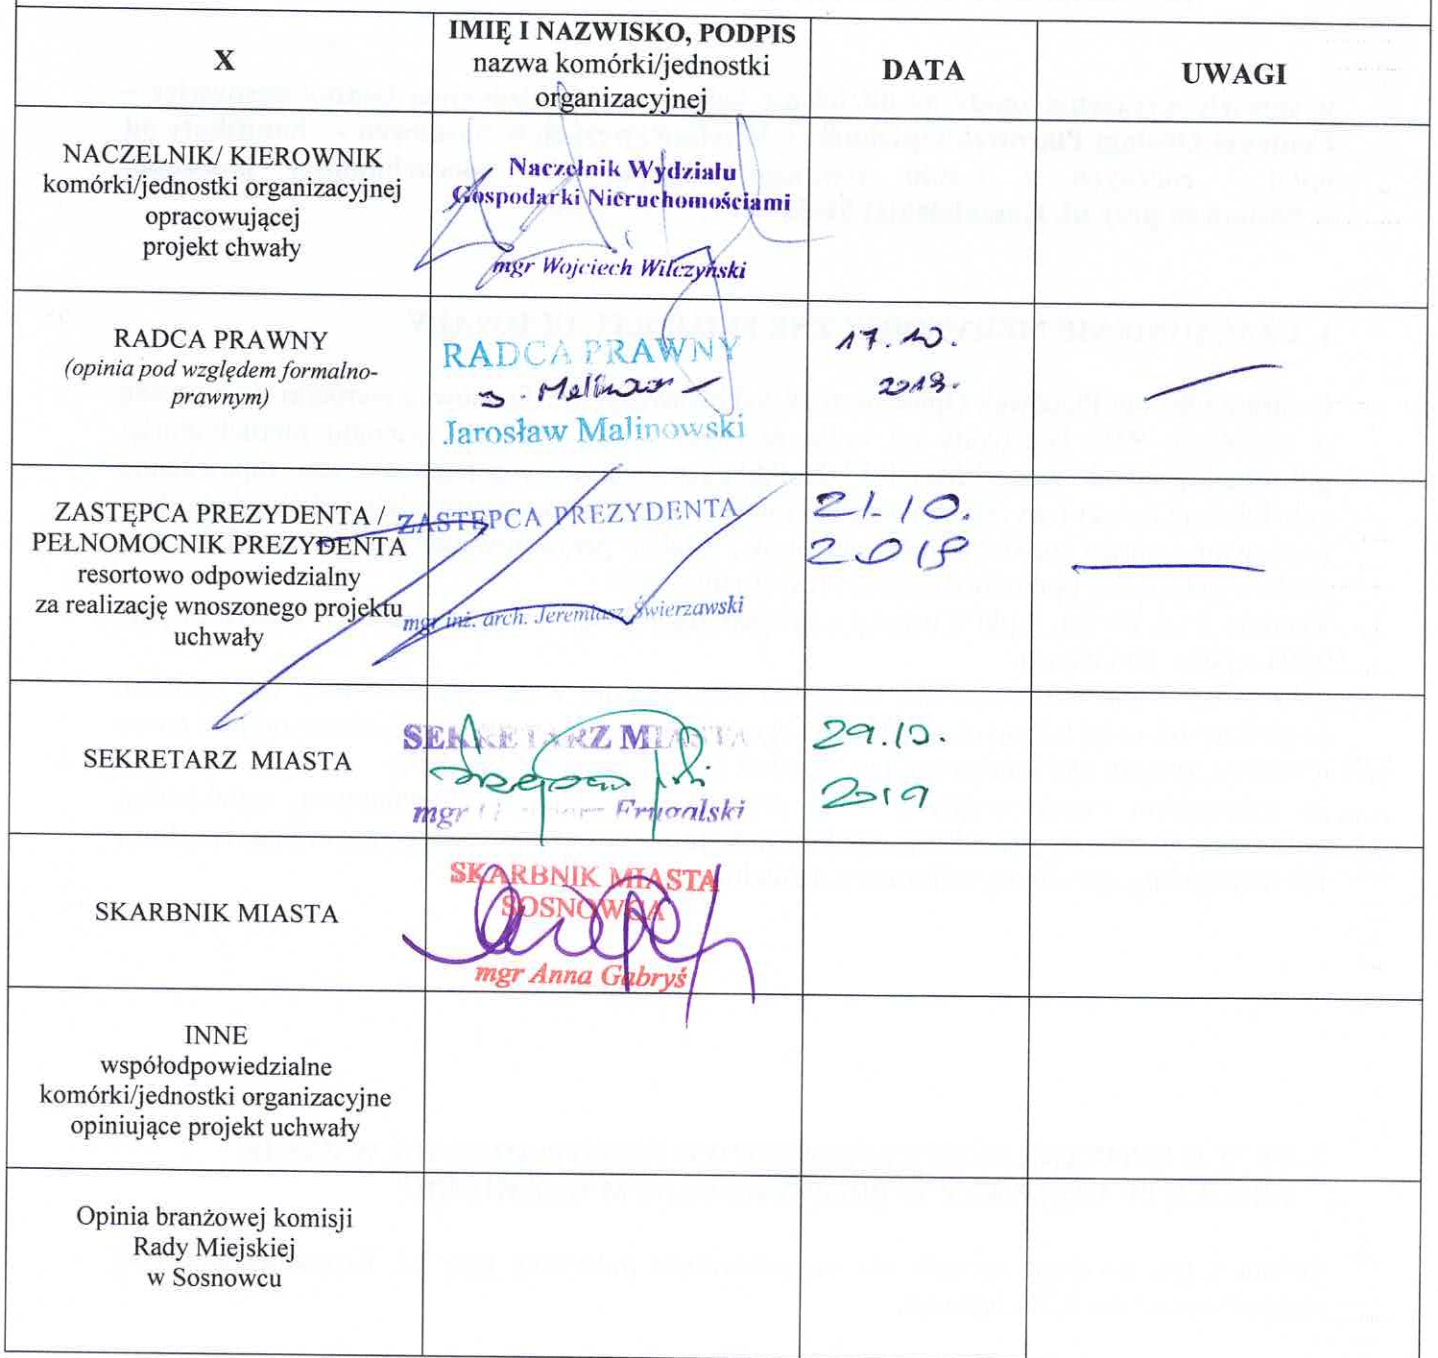 X
IMIĘ I NAZWISKO, PODPIS
nazwa komórki/jednostki
organizacyjnej
DATA
UWAGI
NACZELNIK/ KIEROWNIK
komórki/jednostki organizacyjnej
opracowującej
projekt chwały
Naczelnik Wydziału
Gospodarki Nieruchomościami
mgr Wojciech Wilczyński
RADCA PRAWNY
(opinia pod względem formalno-
prawnym)
RADCA PRAWNY
Jarosław Malinowski
17.10.
2019.
ZASTĘPCA PREZYDENTA /
PEŁNOMOCNIK PREZYDENTA
resortowo odpowiedzialny
za realizację wnoszonego projektu
uchwały
ZASTĘPCA PREZYDENTA
mgr inż. arch. Jeremiasz Świerzawski
21.10.
2019
SEKRETARZ MIASTA
SEKRETARZ MIASTA
mgr Frugalski
29.10.
2019
SKARBNIK MIASTA
SKARBNIK MIASTA
SOSNOWCA
mgr Anna Gabryś
INNE
współodpowiedzialne
komórki/jednostki organizacyjne
opiniujące projekt uchwały
Opinia branżowej komisji
Rady Miejskiej
w Sosnowcu